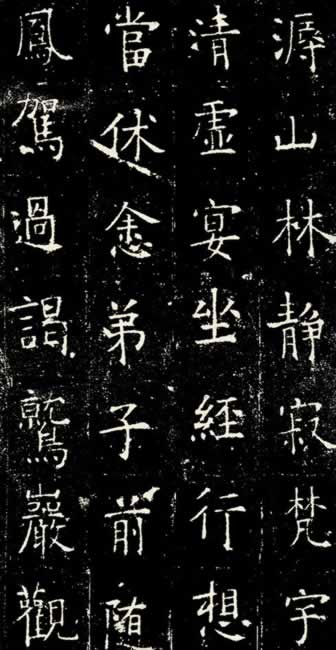 溽山林静寂梵宇
清虚宴坐經行想
當休悆弟子前随
鳳駕過謁鷲巖觀